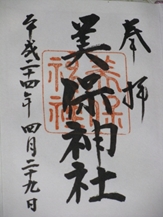 奉拝
美保神社
平成二十四年四月二十九日